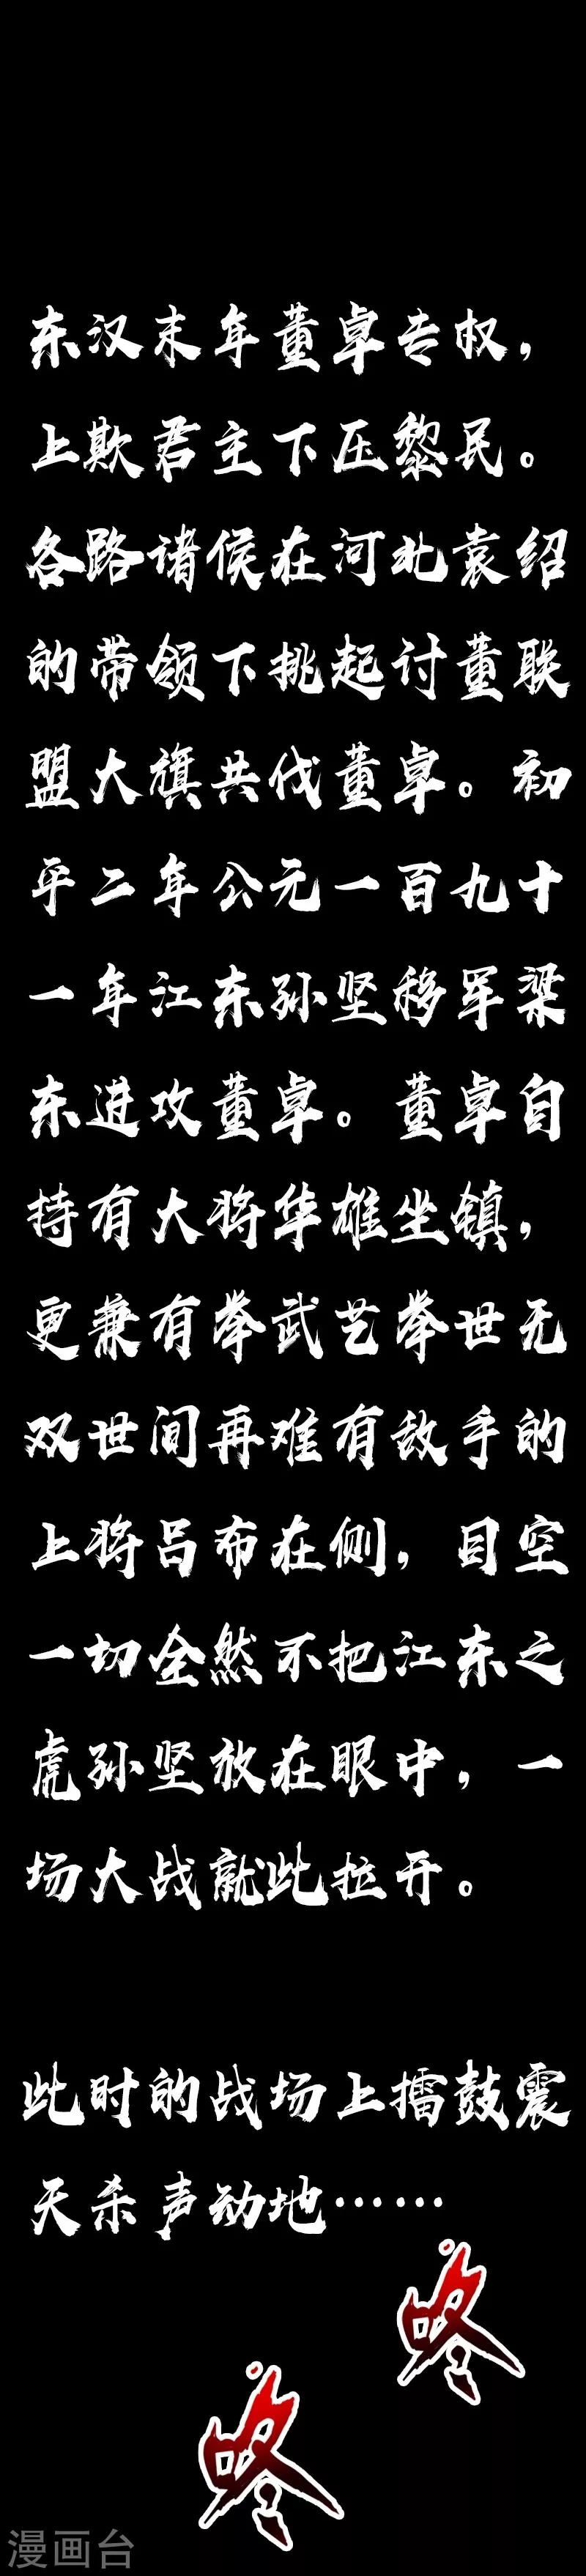 东汉末年董卓专权，
上欺君主下压黎民。
各路诸侯在河北袁绍
的带领下挑起讨董联
盟大旗共伐董卓。初
平二年公元一百九十
一年江东孙坚移军梁
东进攻董卓。董卓自
持有大将华雄坐镇，
更兼有拳武艺拳世无
双世间再难有敌手的
上将吕布在侧，目空
一切全然不把江东之
虎孙坚放在眼中，一
场大战就此拉开。
此时的战场上擂鼓震
天杀声动地……
咚
咚
漫画台